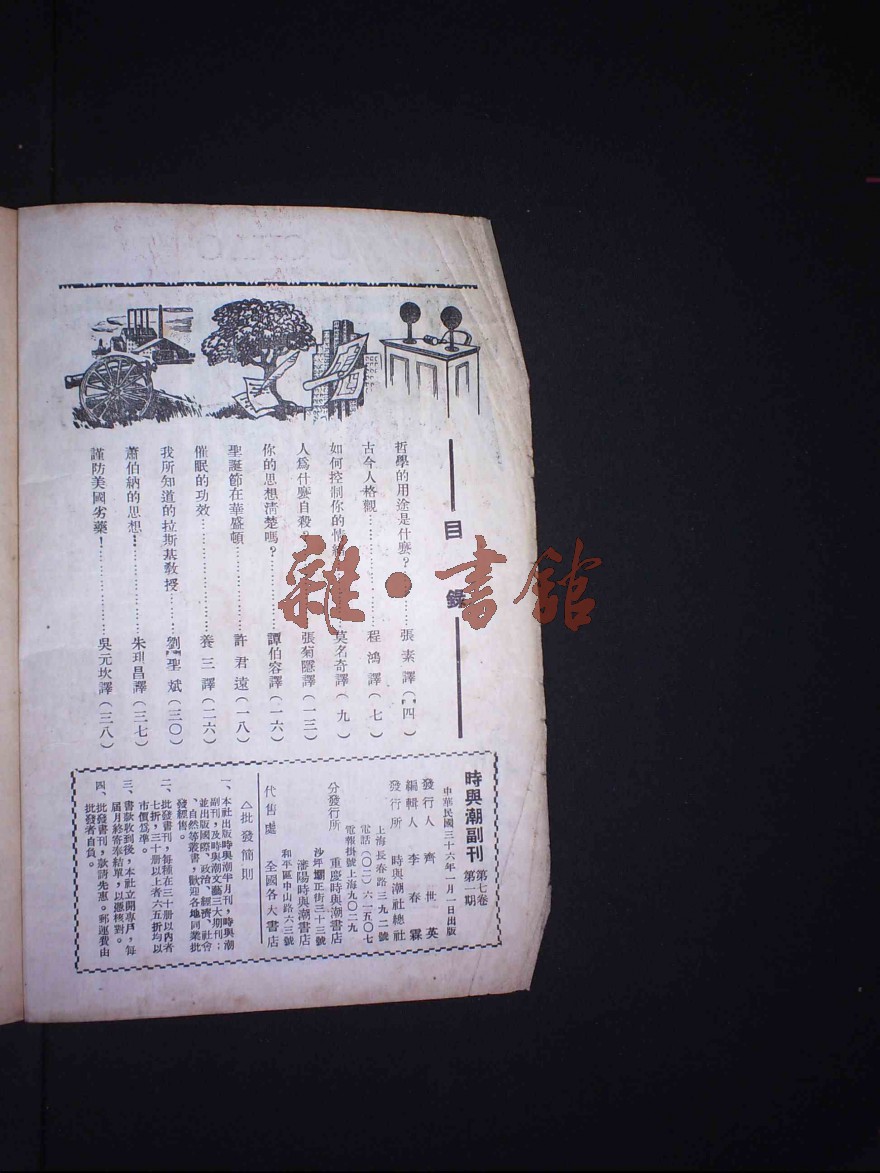 目錄
哲學的用途是什麼？………張素譯（四）
古今人格觀………程鴻譯（七）
如何控制你的情緒………莫名奇譯（九）
人爲什麼自殺？………張菊隱譯（一三）
你的思想清楚嗎？………譚伯容譯（一六）
聖誕節在華盛頓………許君遠（一八）
催眠的功效………養三譯（二六）
我所知道的拉斯基敎授………劉聖斌（三〇）
蕭伯納的思想………朱琪昌譯（三七）
謹防美國劣藥！………吳元坎譯（三八）
時與潮副刊 第七卷 第一期
中華民國三十六年一月一日出版
發行人 齊世英
編輯人 李春霖
發行所 時與潮社總社
上海長春路三九二號
電話（〇二）六一五〇七
電報掛號上海九〇二九
分發行所 重慶時與潮書店
沙坪壩正街三十三號
瀋陽時與潮書店
和平區中山路六三號
代售處 全國各大書店
△批發簡則
一、本社出版時與潮半月刊，時與潮
副刊，及時與潮文藝三大期刊；
並出版國際、政治、經濟、社會
、自然等叢書，歡迎各地同業批
發經售。
二、批發書刊，每種在三十册以內者
七折，三十册以上者六五折均以
市價爲準。
三、書款收到後，本社立開專戶，每
屆月終寄奉結單，以憑核對。
四、批發書刊，款請先惠。郵運費由
批發者自負。
雜·書館